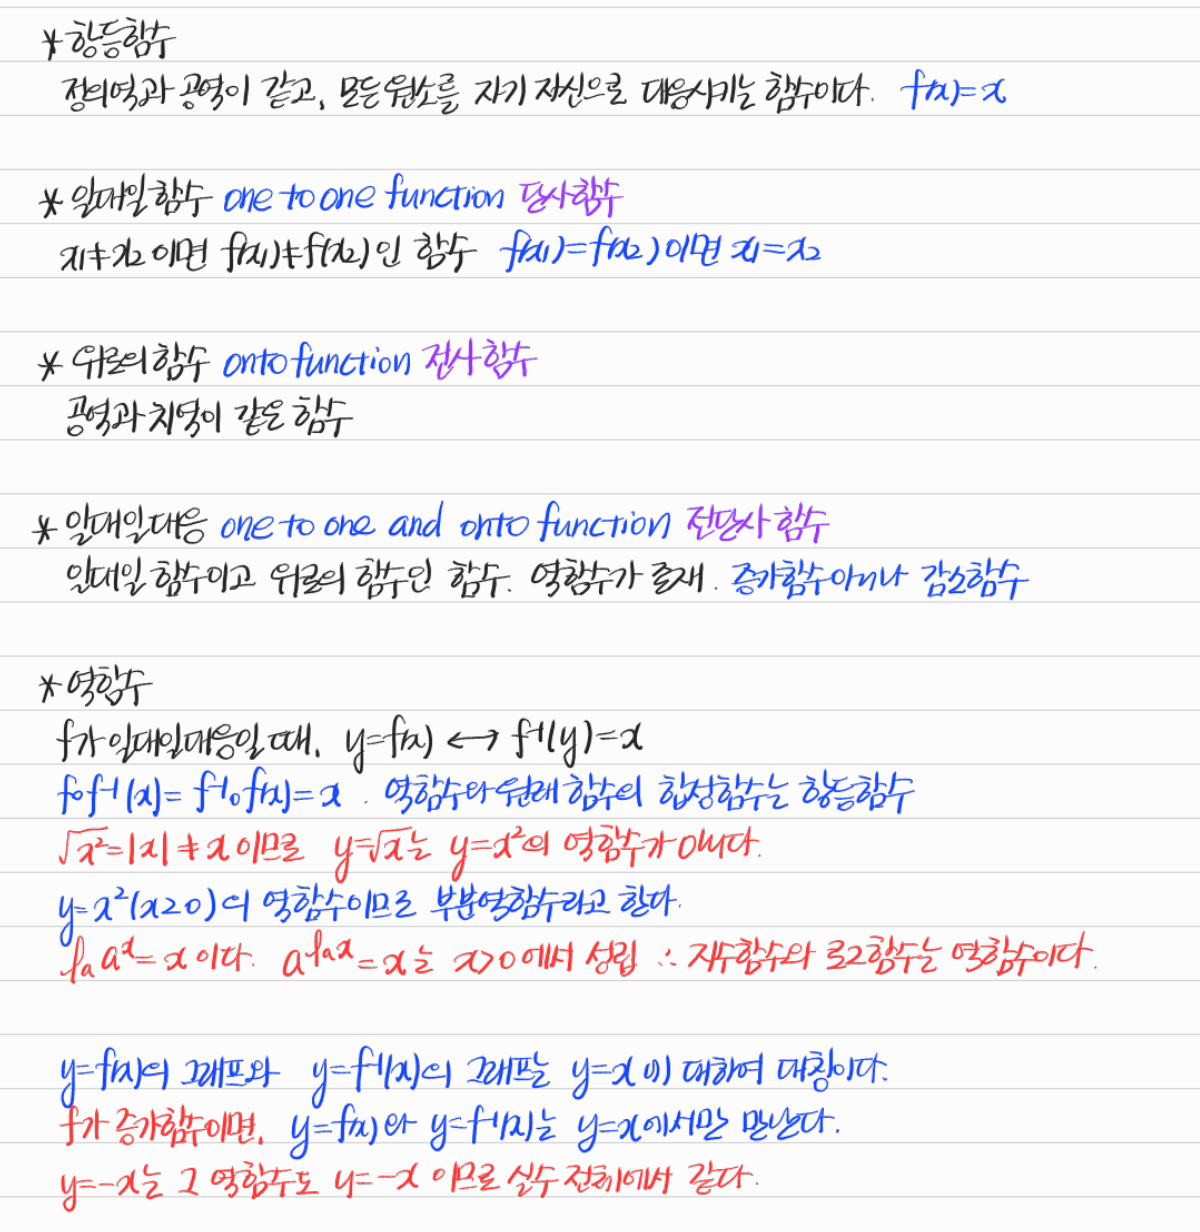 * 항등함수
정의역과 공역이 같고, 모든 원소를 자기 자신으로 대응시키는 함수이다. f(x)=x
* 일대일함수 one to one function 단사함수
x₁≠x₂ 이면 f(x₁)≠f(x₂)인 함수 f(x₁)=f(x₂)이면 x₁=x₂
* 위로의 함수 onto function 전사함수
공역과 치역이 같은 함수
* 일대일대응 one to one and onto function 전단사 함수
일대일 함수이고 위로의 함수인 함수. 역함수가 존재. 증가함수아니나 감소함수
* 역함수
f가 일대일대응일 때, y=f(x) ↔ f⁻¹(y)=x
f∘f⁻¹(x)= f⁻¹∘f(x)=x . 역함수와 원래 함수의 합성함수는 항등함수
√x²=|x|≠x 이므로 y=√x는 y=x²의 역함수가 아니다.
y=x²(x≥0)의 역함수이므로 부분역함수라고 한다.
lₐ aˣ=x 이다. a^(lₐx)=x는 x>0에서 성립 ∴ 지수함수와 로그함수는 역함수이다.
y=f(x)의 그래프와 y=f⁻¹(x)의 그래프는 y=x에 대하여 대칭이다.
f가 증가함수이면, y=f(x)와 y=f⁻¹(x)는 y=x에서만 만난다.
y=-x는 그 역함수도 y=-x 이므로 실수 전체에서 같다.